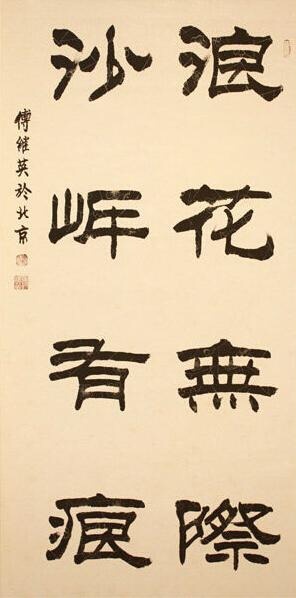 浪花無際
沙岸有痕
傅継英於北京